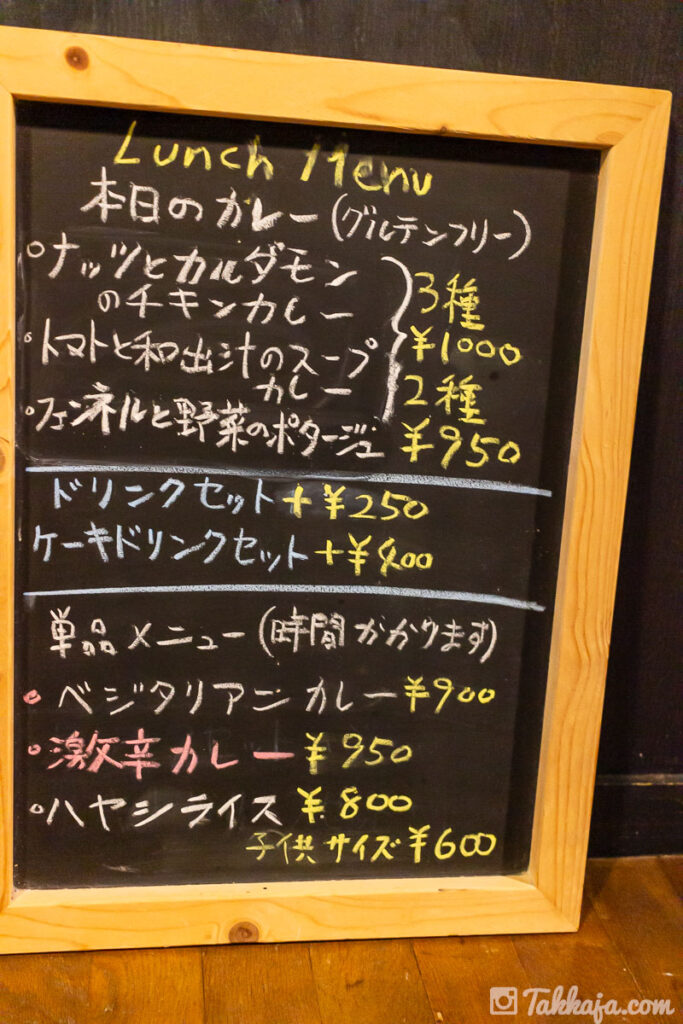 Lunch Menu
本日のカレー(グルテンフリー)
○ナッツとカルダモン
のチキンカレー
・トマトと和出汁のスープ
カレー
・フェンネルと野菜のポタージュ
3種
¥1000
2種
¥950
ドリンクセット+¥250
ケーキドリンクセット+¥400
単品メニュー(時間がかかります)
○ベジタリアンカレー¥900
○激辛カレー¥950
○ハヤシライス¥800
子供サイズ¥600
Takkaja.com